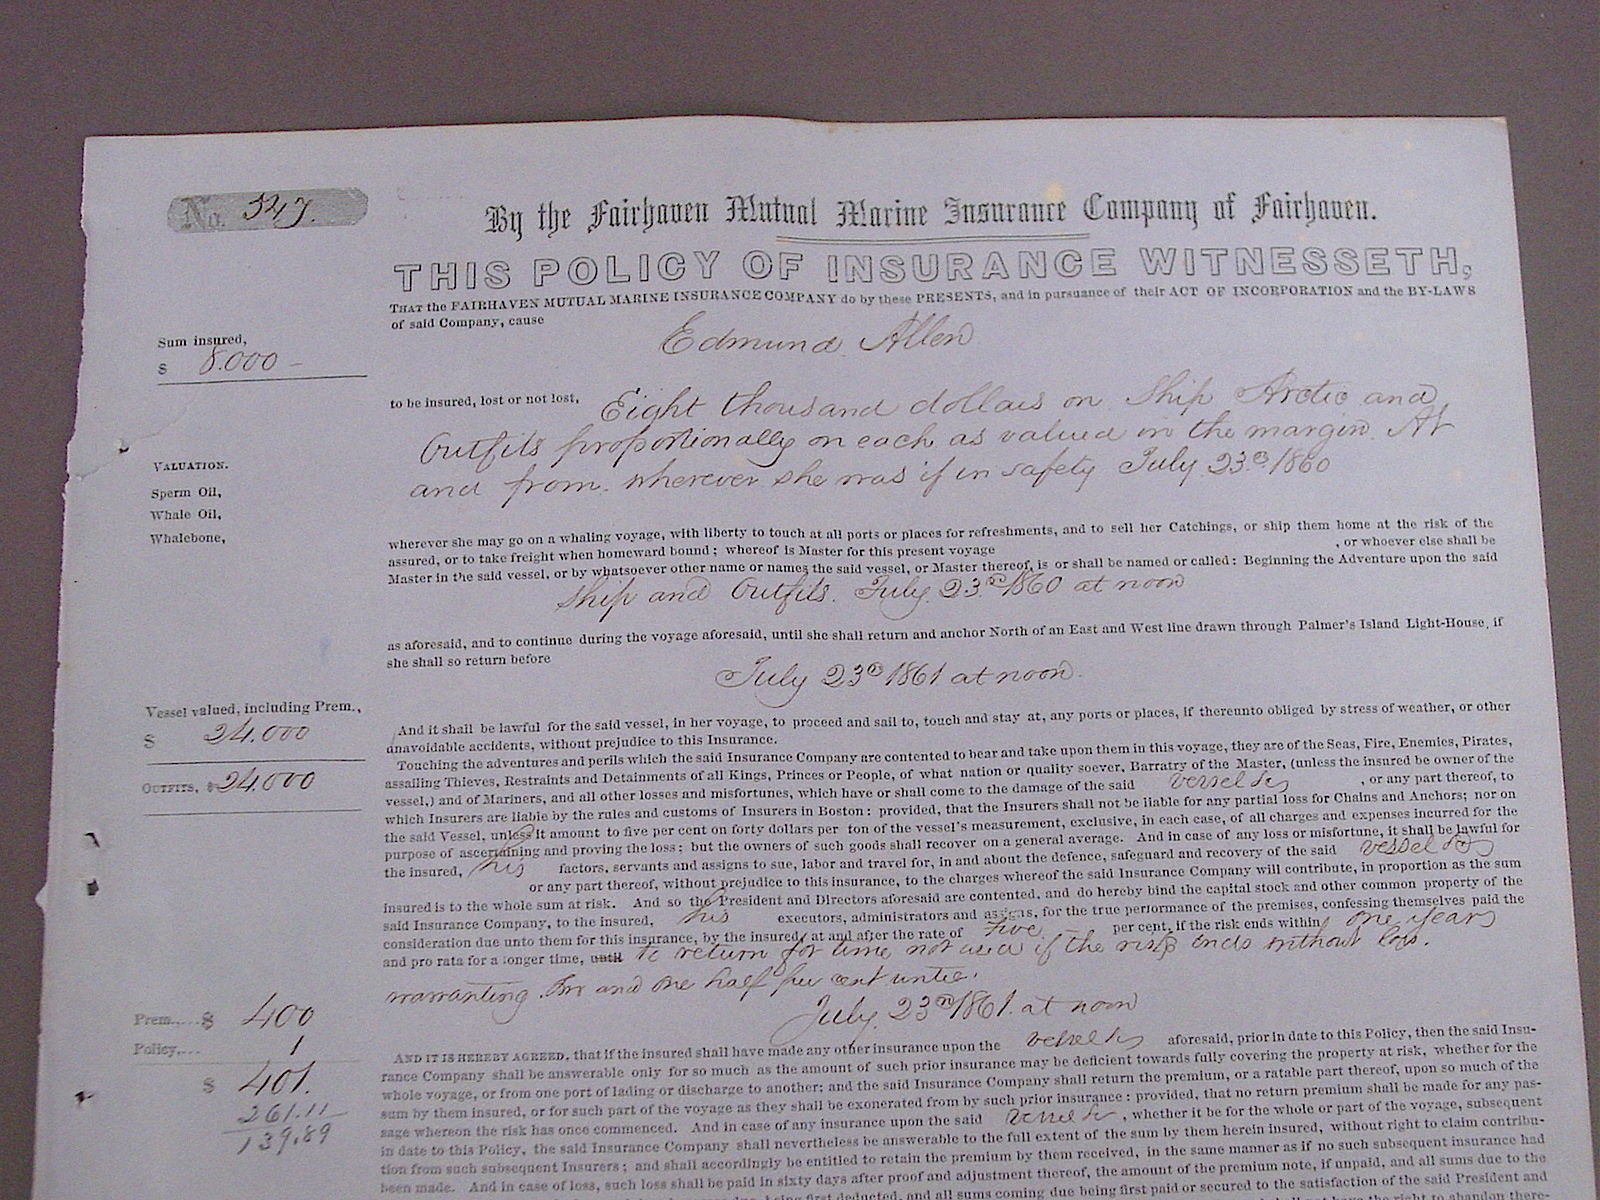 No. 347.
By the Fairhaven Mutual Marine Insurance Company of Fairhaven.
THIS POLICY OF INSURANCE WITNESSETH,
THAT the FAIRHAVEN MUTUAL MARINE INSURANCE COMPANY do by these PRESENTS, and in pursuance of their ACT OF INCORPORATION and the BY-LAWS
of said Company, cause
Edmund Allen
Sum insured,
$ 8.000 -
to be insured, lost or not lost, Eight thousand dollars on Ship Arctic and
Outfits proportionally on each as valued in the margin. At
and from wherever she was if in safety July 23d 1860
VALUATION.
Sperm Oil,
Whale Oil,
Whalebone,
wherever she may go on a whaling voyage, with liberty to touch at all ports or places for refreshments, and to sell her Catchings, or ship them home at the risk of the
assured, or to take freight when homeward bound; whereof is Master for this present voyage , or whoever else shall be
Master in the said vessel, or by whatsoever other name or names the said vessel, or Master thereof, is or shall be named or called: Beginning the Adventure upon the said
Ship and Outfits. July 23d 1860 at noon
as aforesaid, and to continue during the voyage aforesaid, until she shall return and anchor North of an East and West line drawn through Palmer's Island Light-House, if
she shall so return before
July 23d 1861 at noon.
Vessel valued, including Prem.,
$ 24.000
OUTFITS, $ 24.000
And it shall be lawful for the said vessel, in her voyage, to proceed and sail to, touch and stay at, any ports or places, if thereunto obliged by stress of weather, or other
unavoidable accidents, without prejudice to this Insurance.
Touching the adventures and perils which the said Insurance Company are contented to bear and take upon them in this voyage, they are of the Seas, Fire, Enemies, Pirates,
assailing Thieves, Restraints and Detainments of all Kings, Princes or People, of what nation or quality soever, Barratry of the Master, (unless the insured be owner of the
vessel,) and of Mariners, and all other losses and misfortunes, which have or shall come to the damage of the said vessel &c , or any part thereof, to
which Insurers are liable by the rules and customs of Insurers in Boston: provided, that the Insurers shall not be liable for any partial loss for Chains and Anchors; nor on
the said Vessel, unless it amount to five per cent on forty dollars per ton of the vessel's measurement, exclusive, in each case, of all charges and expenses incurred for the
purpose of ascertaining and proving the loss; but the owners of such goods shall recover on a general average. And in case of any loss or misfortune, it shall be lawful for
the insured, his factors, servants and assigns to sue, labor and travel for, in and about the defence, safeguard and recovery of the said vessel &c
or any part thereof, without prejudice to this insurance, to the charges whereof the said Insurance Company will contribute, in proportion as the sum
insured is to the whole sum at risk. And so the President and Directors aforesaid are contented, and do hereby bind the capital stock and other common property of the
said Insurance Company, to the insured, his executors, administrators and assigns, for the true performance of the premises, confessing themselves paid the
consideration due unto them for this insurance, by the insured, at and after the rate of Five per cent, if the risk ends within one year
and pro rata for a longer time, until to return for time not used if the risk ends without loss.
warranting and one half per cent until
July 23d 1861. at noon
Prem.,... $ 400
Policy,... 1
$ 401.
261.11
139.89
AND IT IS HEREBY AGREED, that if the insured shall have made any other insurance upon the vessel &c aforesaid, prior in date to this Policy, then the said Insu-
rance Company shall be answerable only for so much as the amount of such prior insurance may be deficient towards fully covering the property at risk, whether for the
whole voyage, or from one port of lading or discharge to another: and the said Insurance Company shall return the premium, or a ratable part thereof, upon so much of the
sum by them insured, or for such part of the voyage as they shall be exonerated from by such prior insurance: provided, that no return premium shall be made for any pas-
sage whereon the risk has once commenced. And in case of any insurance upon the said vessel &c , whether it be for the whole or part of the voyage, subsequent
in date to this Policy, the said Insurance Company shall nevertheless be answerable to the full extent of the sum by them herein insured, without right to claim contribu-
tion from such subsequent Insurers; and shall accordingly be entitled to retain the premium by them received, in the same manner as if no such subsequent insurance had
been made. And in case of loss, such loss shall be paid in sixty days after proof and adjustment thereof, the amount of the premium note, if unpaid, and all sums due to the
being first deducted, and all sums coming due being first paid or secured to the satisfaction of the said President and